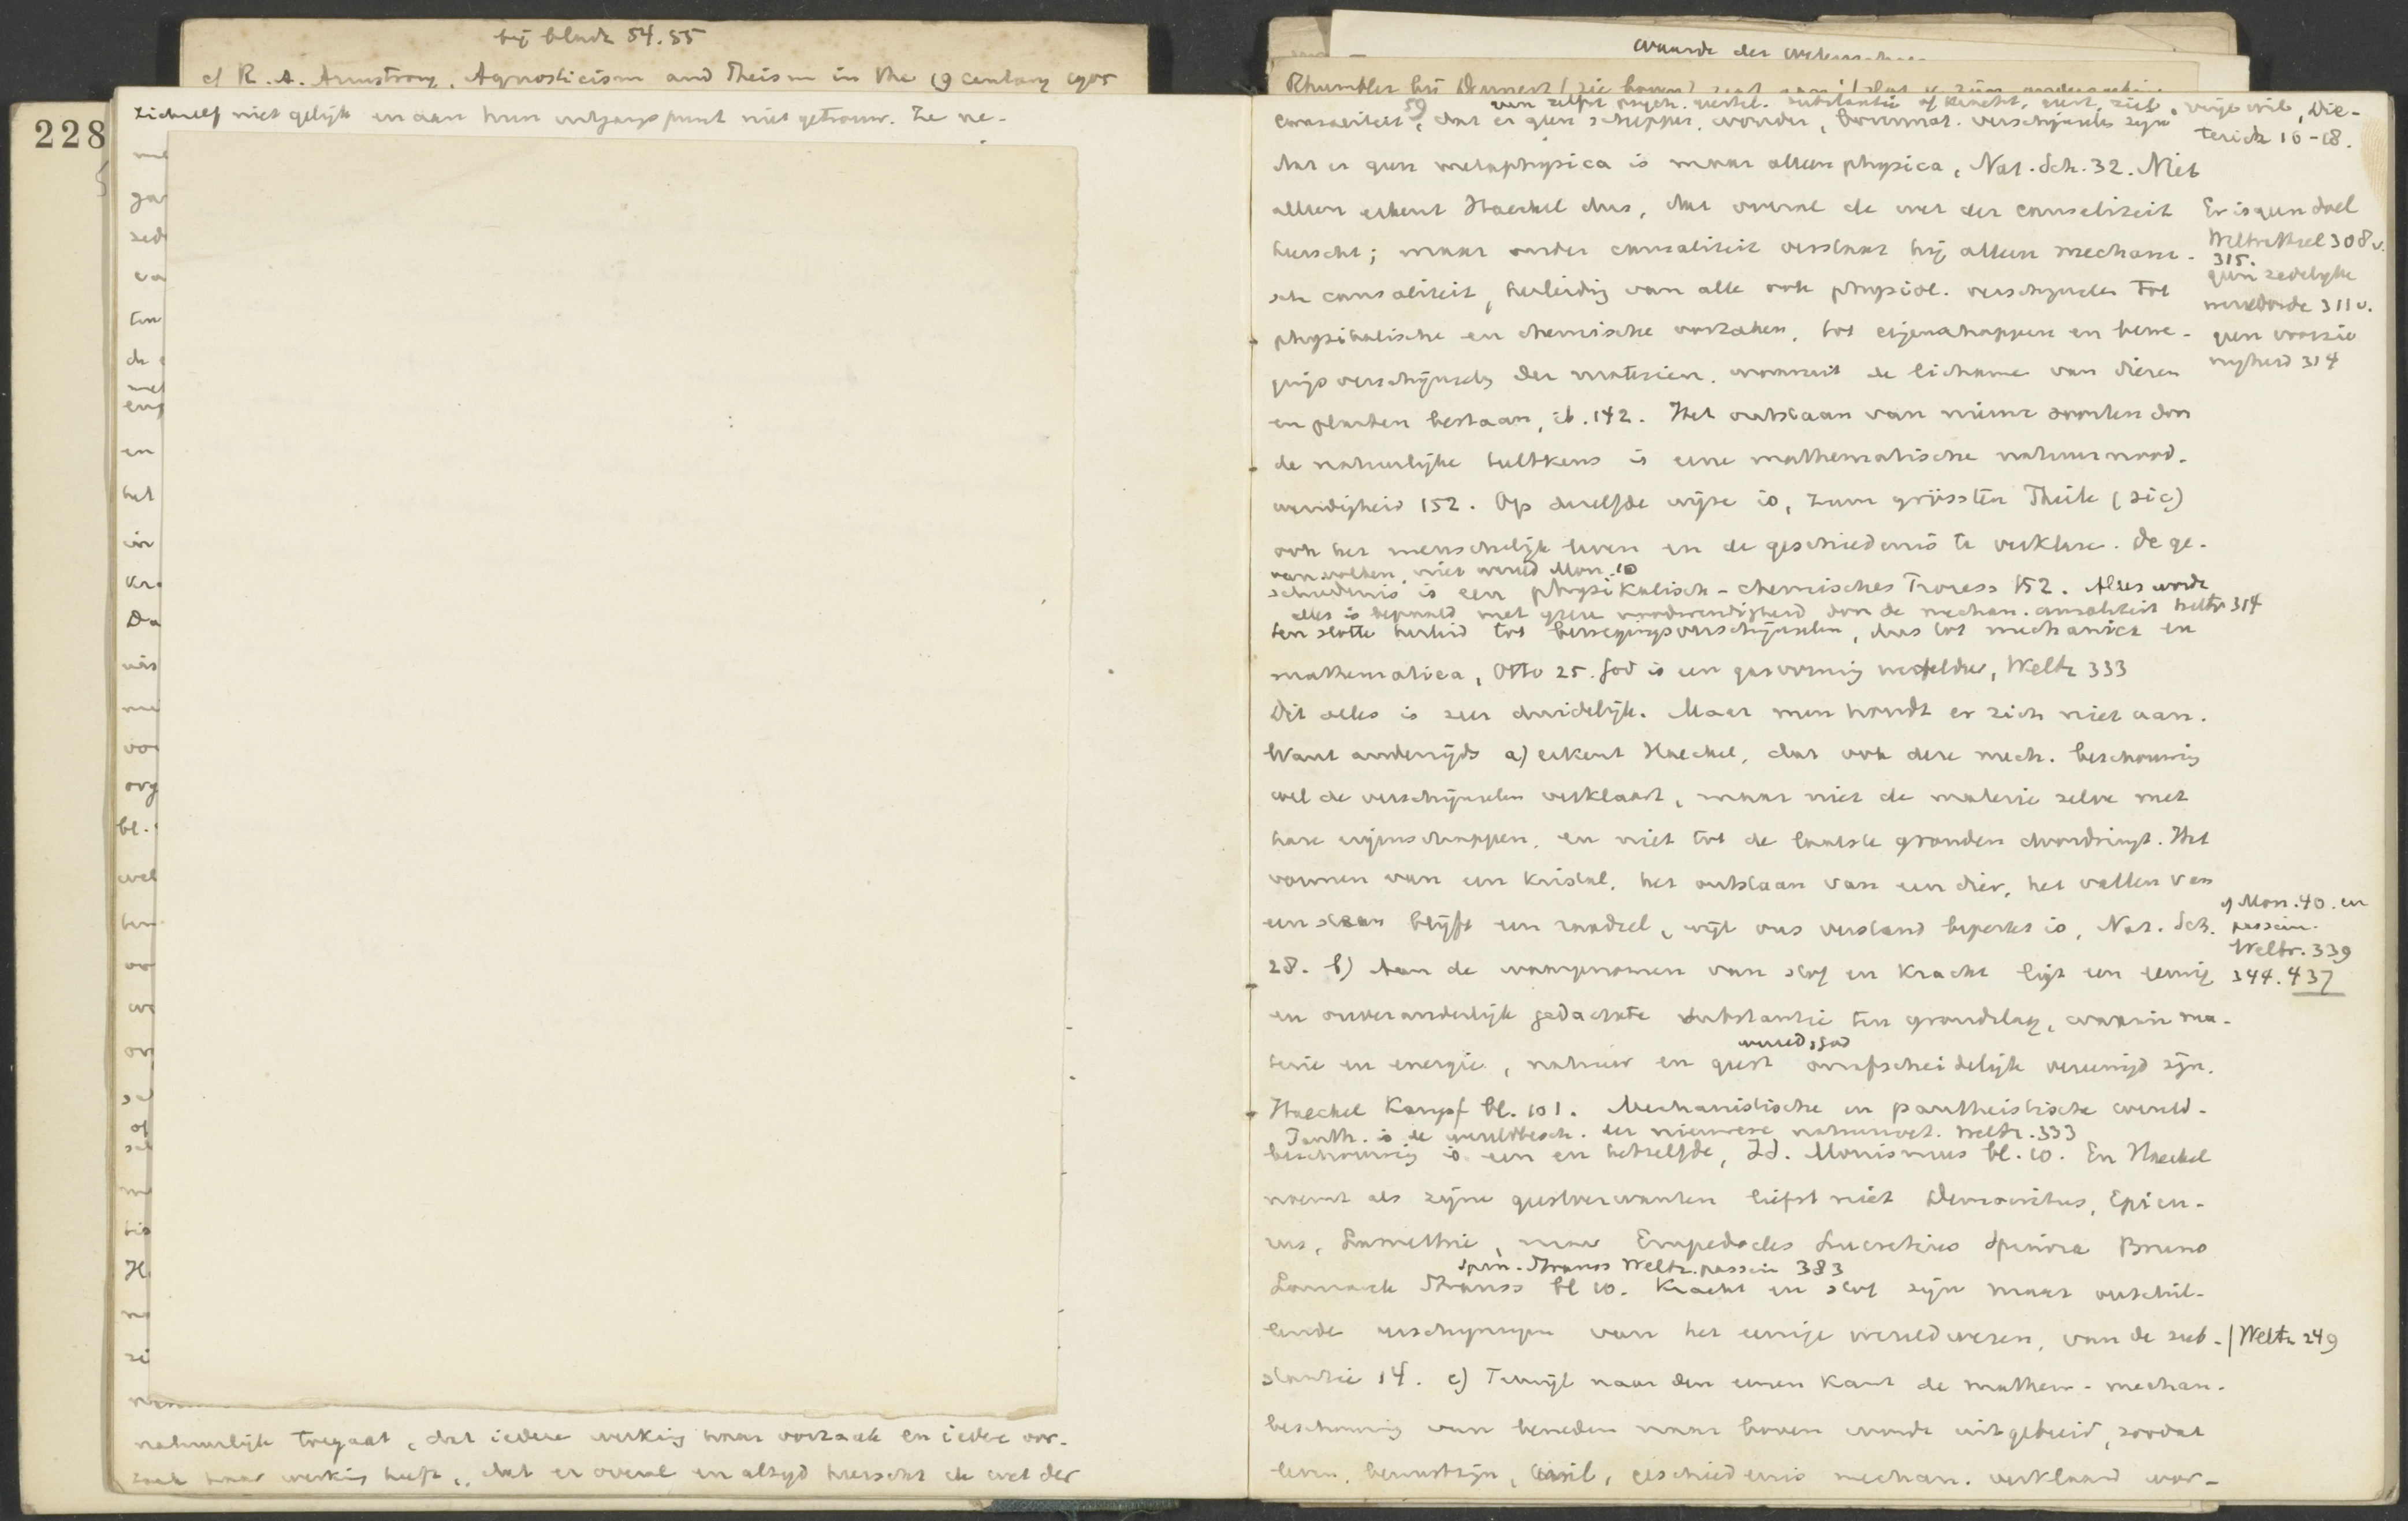 bij bladz 54.55
cf R. A. Armstrong, Agnosticism and Theism in the 19 century 1905
228
zichzelf niet gelijk en aan hun uitgangspunt niet getrouw. Ze ne-
ga
zed
va
ten
de
met
en
het
in
Kra
Da
voo
org
bl.
wel
or
op
m
tis
H
zi
natuurlijk toegaat, dat iedere werking haar oorzaak en iedere oor-
zaak haar werking heeft, dat er overal en altijd heerscht de wet der
waarde der wetenschap
Rhumbler bij Dennert (zie boven) zegt
59 van zelfst. psych. versch. substantie of kracht, geest, ziel, vrije wil, Die-
terich 16-18.
causaliteit, dat er geen schepper, wonder, bovennat. verschijnsels zijn
dat er geen metaphysica is maar alleen physica, Nat. Sch. 32. Niet
alleen erkent Haeckel dus, dat overal de wet der causaliteit
heerscht; maar onder causaliteit verstaat hij alleen mechani-
sche causaliteit, herleiding van alle ook physiol. verschijnselen tot
physikalische en chemische oorzaken, tot eigenschappen en bewe-
gingsverschijnsels der materien, waaruit de lichamen van dieren
en planten bestaan, ib. 142. Het ontstaan van nieuwe soorten door
de natuurlijke teeltkeus is eene mathematische natuurnood-
wendigheid 152. Op dezelfde wijze is, zum grössten Theile (sic)
ook het menschelijk leven en de geschiedenis te verklaren. De ge-
van volken, niet wereld Mon. 10
schiedenis is een physikalisch-chemisches Process 152. Alles wordt
alles is bepaald met ijzere noodwendigheid door de mechan. causaliteit Weltr 314
ten slotte herleid tot bewegingsverschijnselen, dus tot mechanica en
mathematica, Otto 25. God is een gasvormig werveldier, Weltr 333
Dit alles is zeer duidelijk. Maar men houdt er zich niet aan.
Want anderzijds a) erkent Haeckel, dat ook deze mech. beschouwing
wel de verschijnselen verklaart, maar niet de materie zelve met
hare eigenschappen, en niet tot de laatste gronden doordringt. Het
vormen van een kristal, het ontstaan van een dier, het vallen van
een steen blijft een raadsel, wijl ons verstand beperkt is, Nat. Sch.
28. b) Aan de waargenomen van stof en kracht ligt een eeuwig
en onveranderlijk gedachte substantie ten grondslag, waarin ma-
wereld, God
terie en energie, natuur en geest onafscheidelijk vereenigd zijn.
Haeckel Kampf bl. 101. Mechanistische en pantheistische wereld-
Panth. is de wereldbesch. der nieuwere natuurwet. Weltr. 333
beschouwing is een en hetzelfde, Id. Monismus bl. 10. En Haeckel
noemt als zijne geestverwanten liefst niet Democritus, Epicu-
rus, Lamettrie, maar Empedocles Lucretius Spinoza Bruno
Spin. Strauss Weltr. passim 383
Lamarck Strauss bl 10. Kracht en stof zijn maar verschil-
lende verschijningen van het eenige wereldwezen, van de sub-
stantie 14. c) Terwijl naar den eenen kant de mathem-mechan.
beschouwing van beneden naar boven wordt uitgebreid, zoodat
leven, bewustzijn, wil, geschiedenis mechan. verklaard wor-
Er is geen doel
Weltrathsel 308 v.
315.
geen zedelijke
wereldorde 311 v.
geen voorzie
nigheid 314
cf Mon. 40. en
passim.
Weltr. 339
344. 437
Weltr 249